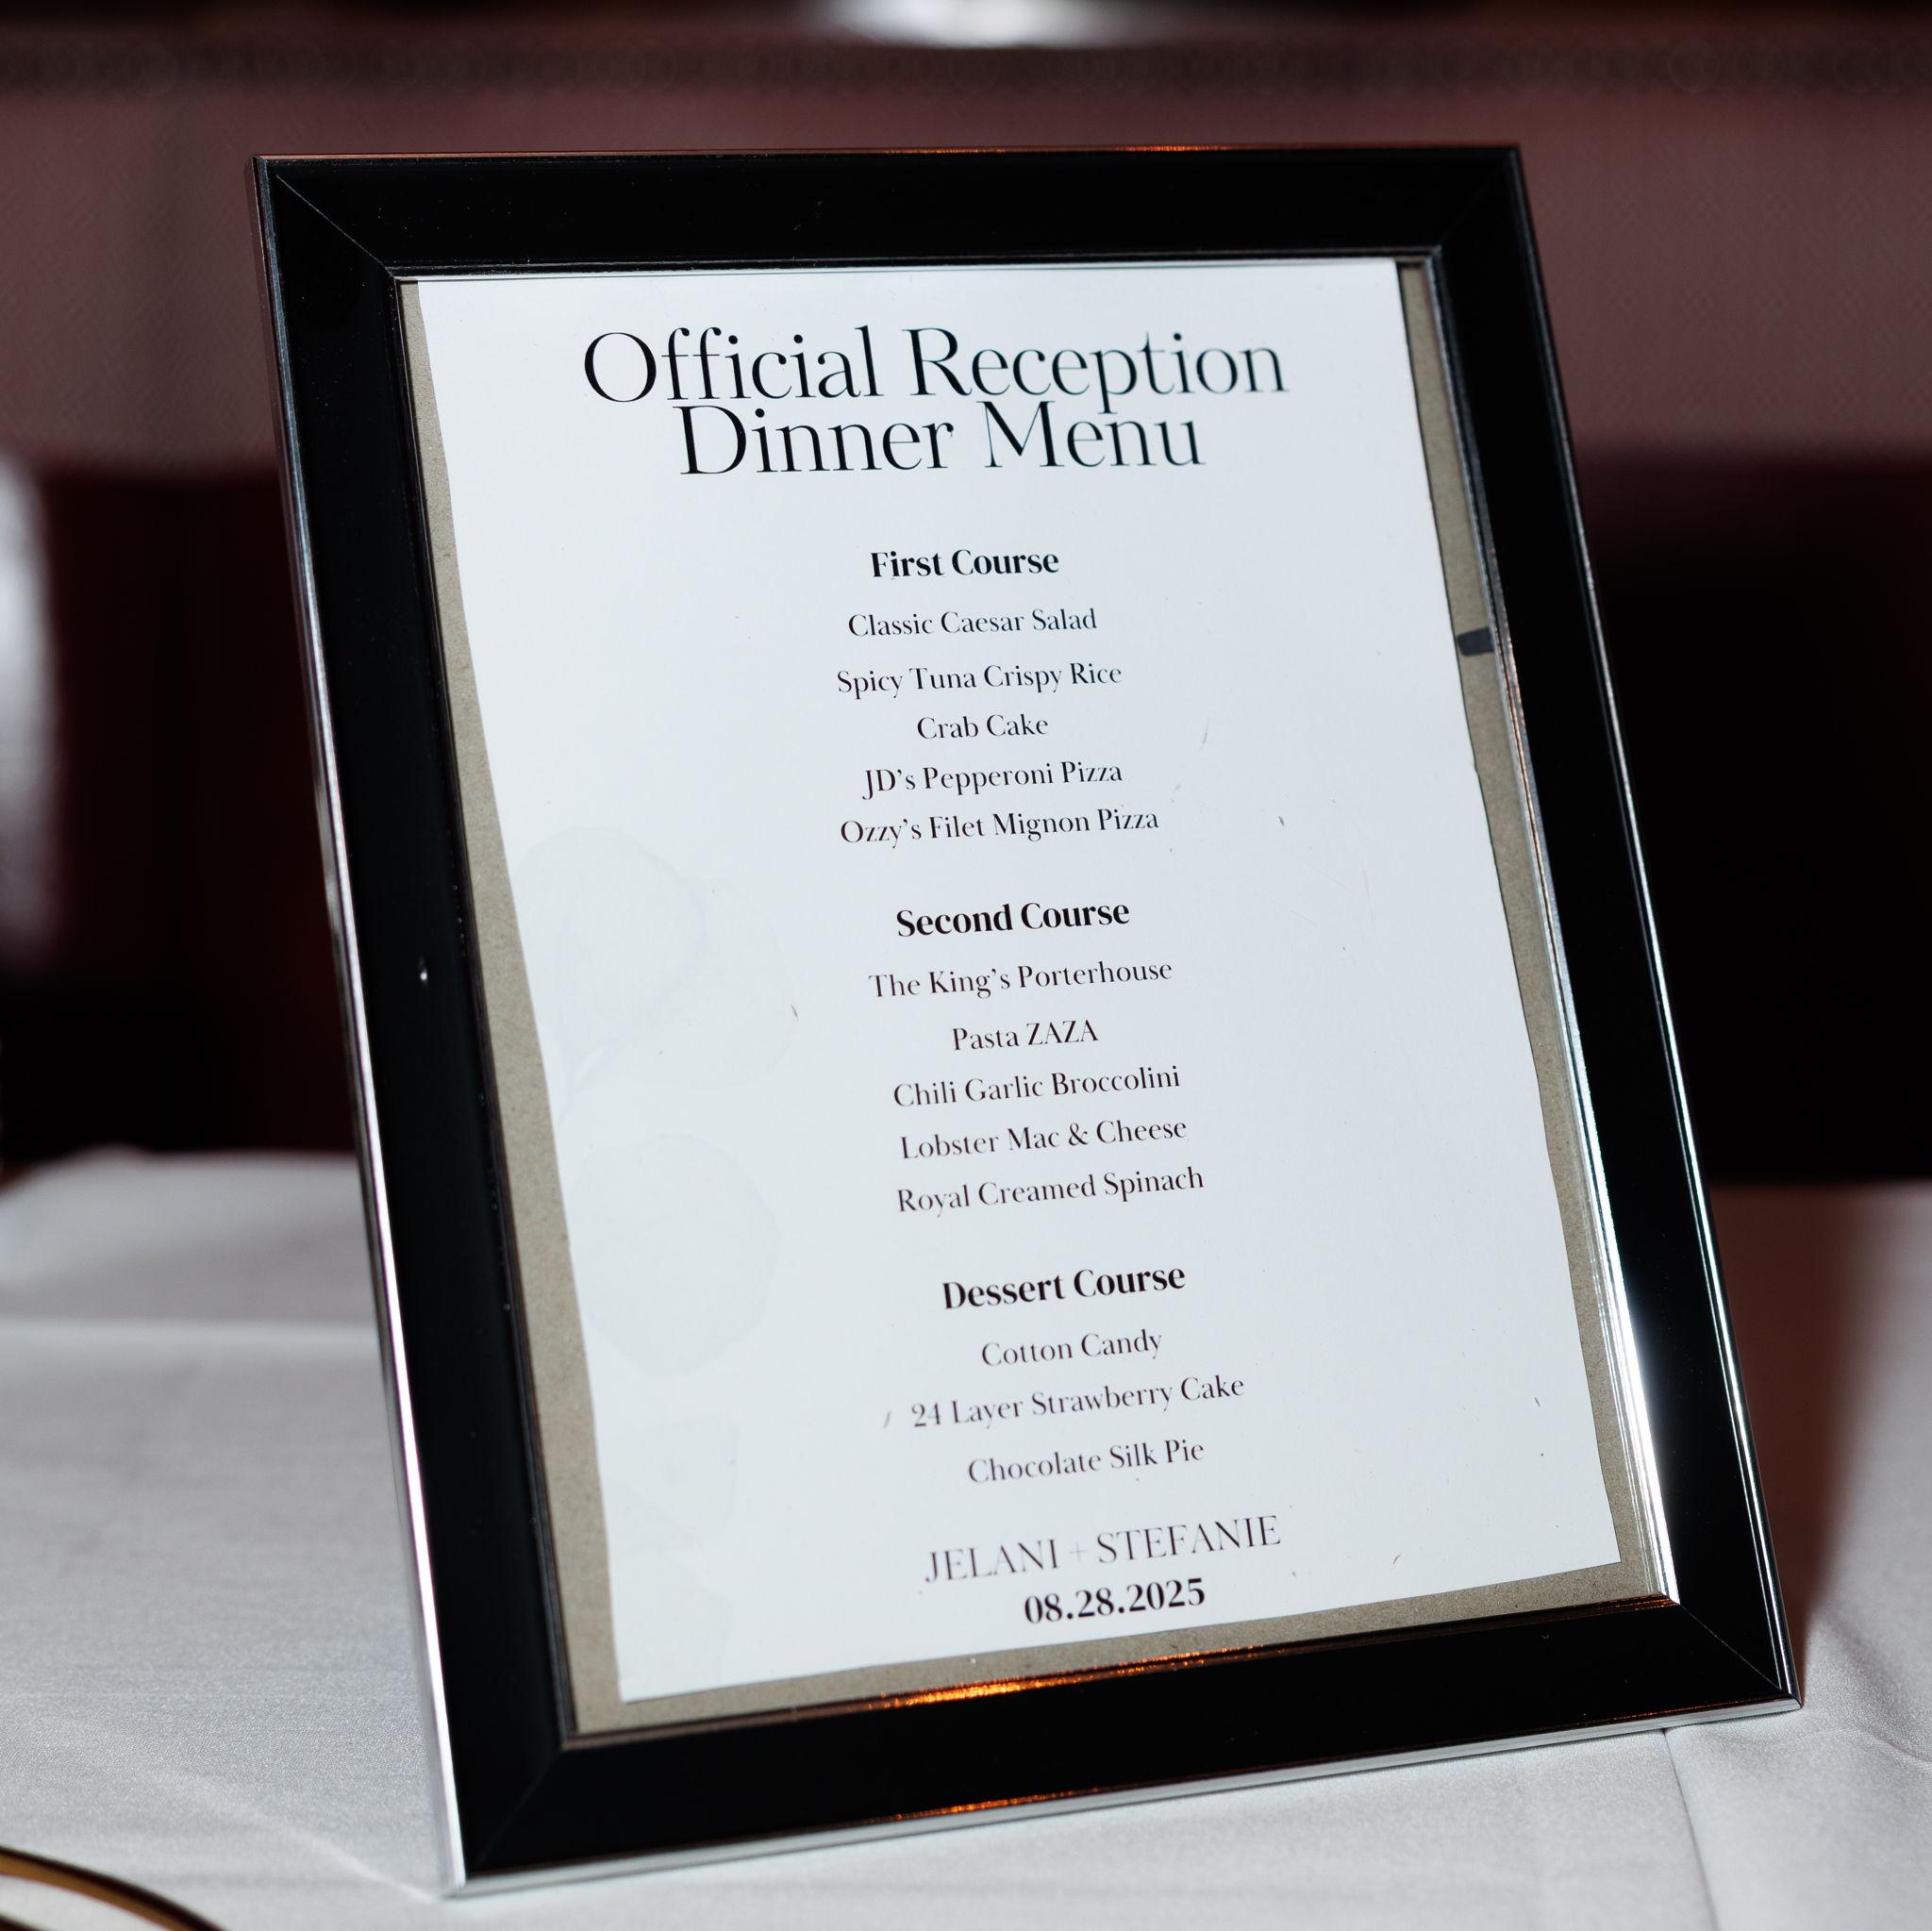 Official Reception
Dinner Menu
First Course
Classic Caesar Salad
Spicy Tuna Crispy Rice
Crab Cake
JD’s Pepperoni Pizza
Ozzy’s Filet Mignon Pizza
Second Course
The King’s Porterhouse
Pasta ZAZA
Chili Garlic Broccolini
Lobster Mac & Cheese
Royal Creamed Spinach
Dessert Course
Cotton Candy
24 Layer Strawberry Cake
Chocolate Silk Pie
JELANI + STEFANIE
08.28.2025